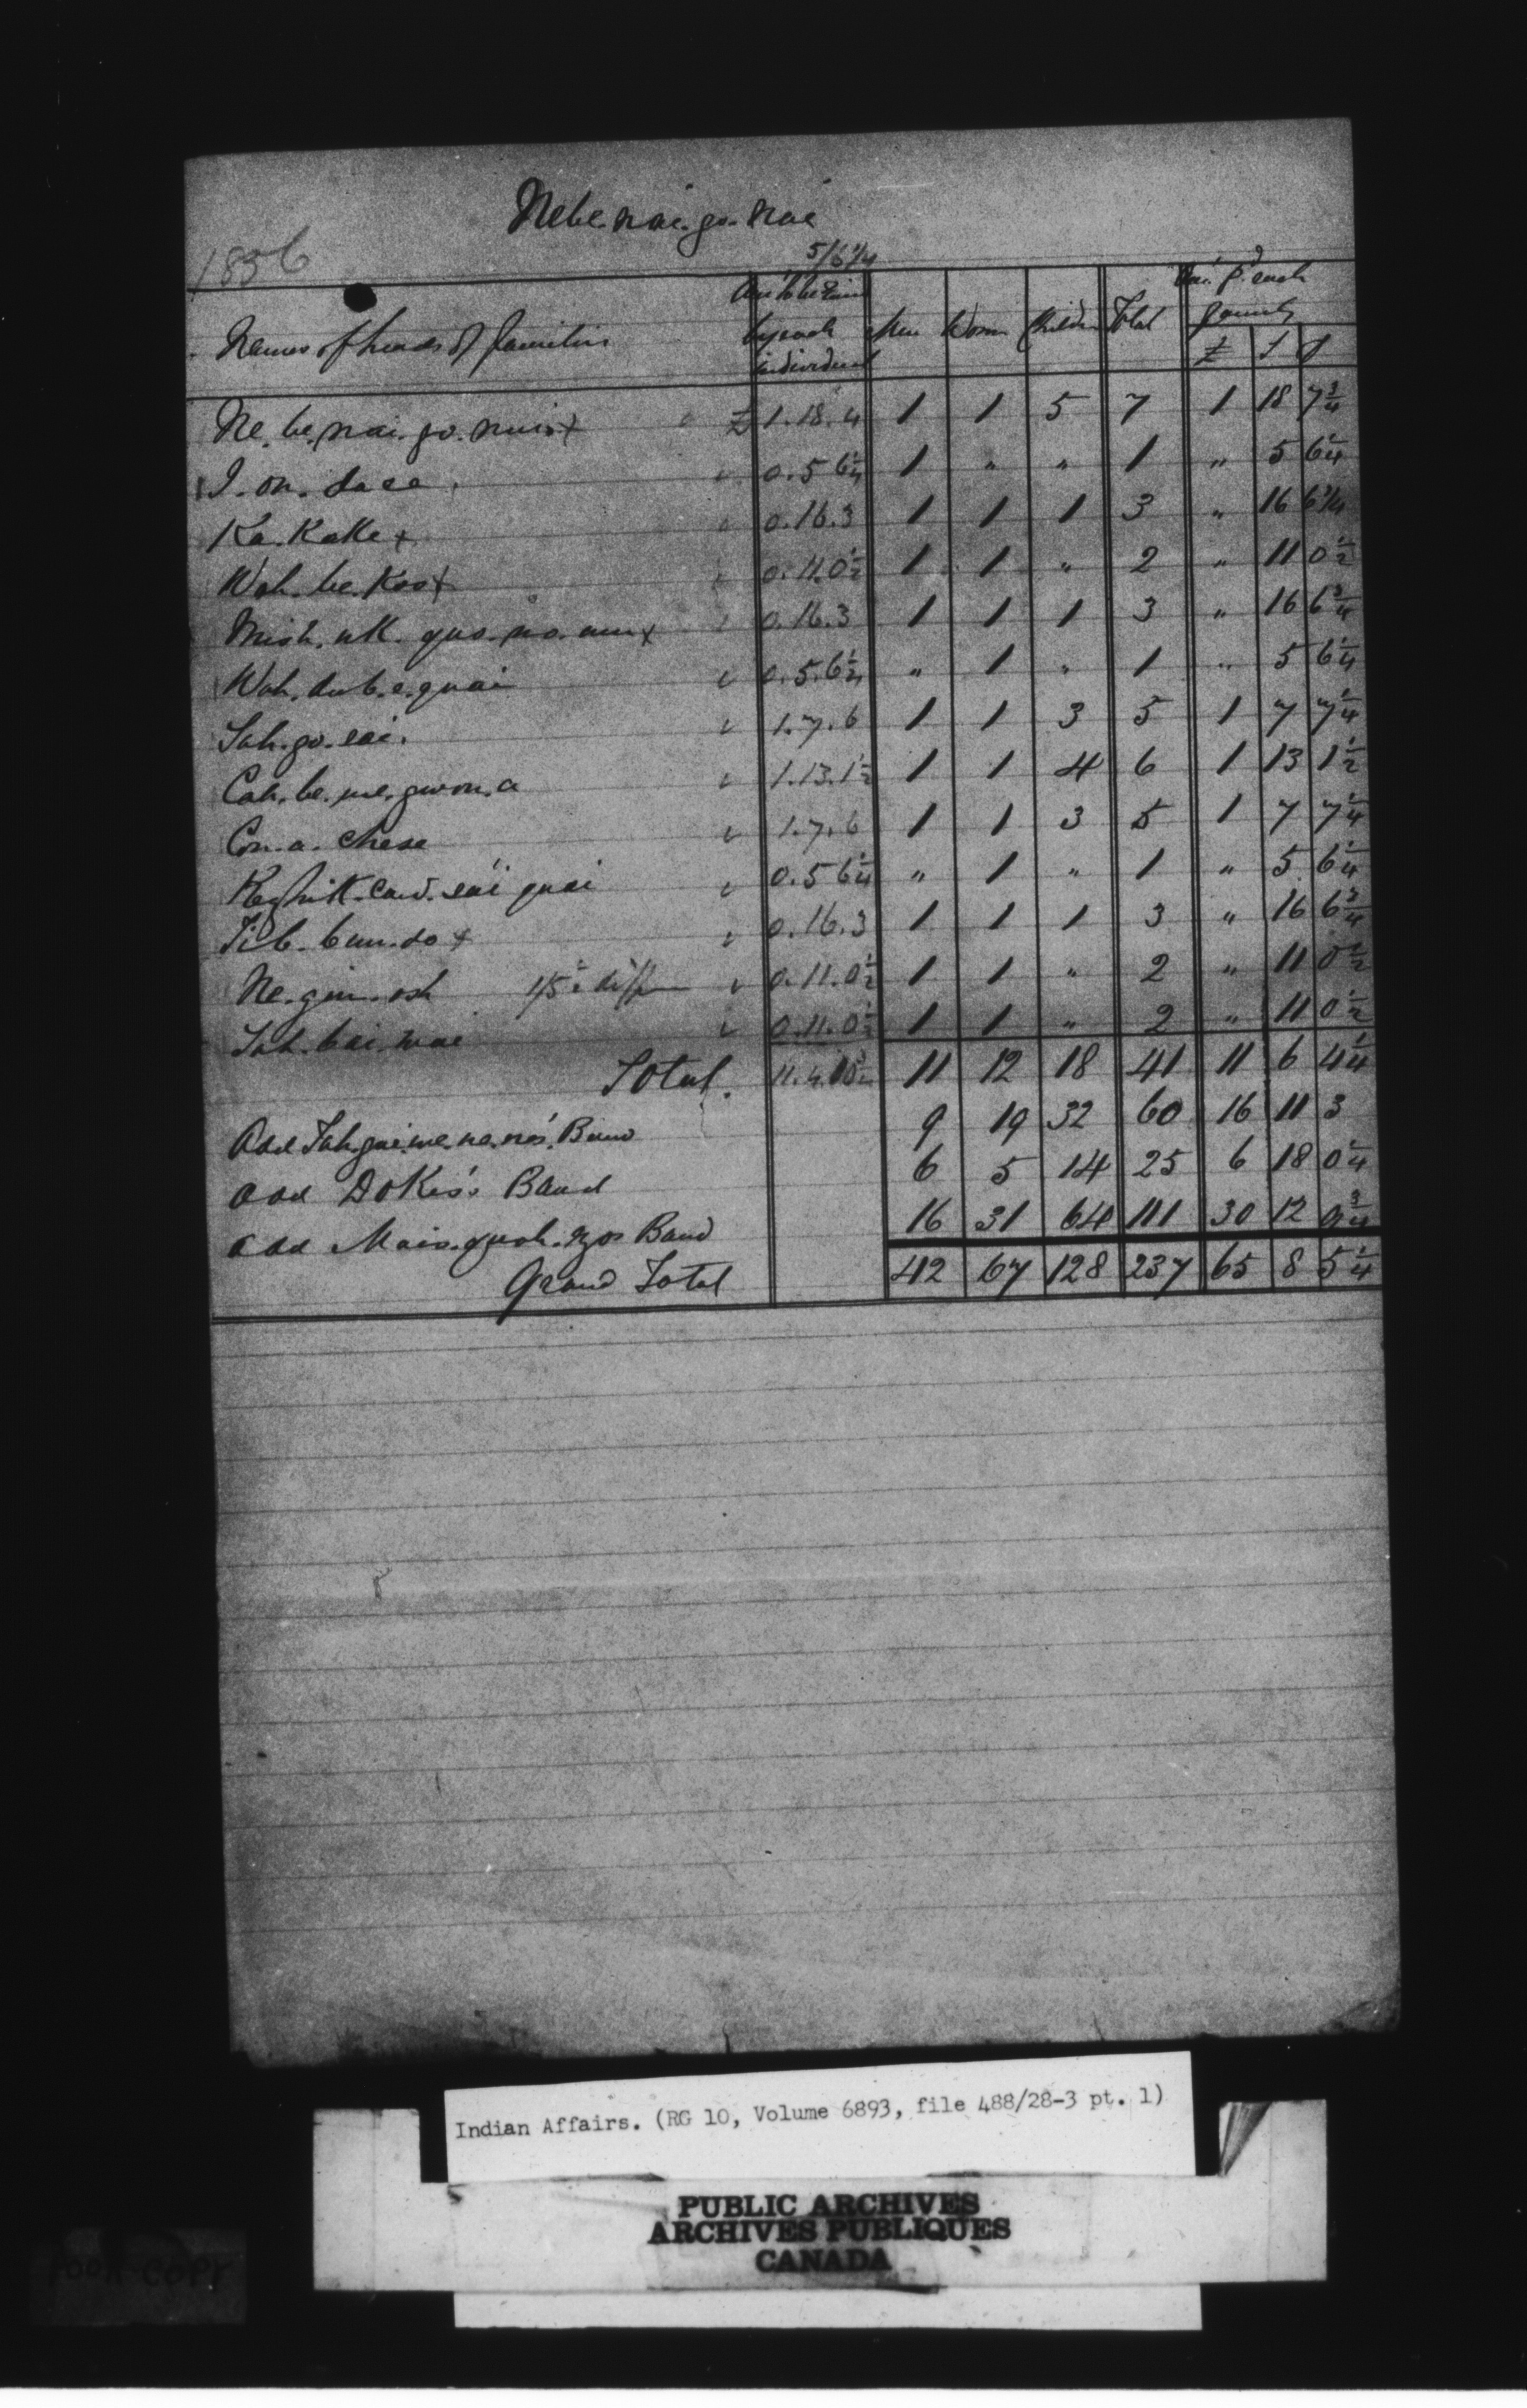 Nebe.nai.go.nai
1856
5/6 1/4
Names of heads of families by each individual Men Women Children Total Am. p. each family
£ s d
Ne.be.nai.go.nuis+ £ 1.18.4 1 1 5 7 1 18 7 3/4
I.on.dace 0.5 6 1/4 1 " " 1 " 5 6 1/4
Ka.Kake+ 0.16.3 1 1 1 3 " 16 6 3/4
Wah.be.Koo+ 0.11.0 1/2 1 1 " 2 " 11 0 1/2
0.16.3 1 1 1 3 " 16 6 3/4
Wah.dub.e.quai 0.5.6 1/4 " 1 " 1 " 5 6 1/4
Sah.go.sai. 1.7.6 1 1 3 5 1 7 7 1/4
Cah.be.me.gwon.a 1.13.1 1/2 1 1 4 6 1 13 1 1/2
Con.a.chese 1.7.6 1 1 3 5 1 7 7 1/4
0.5 6 1/4 " 1 " 1 " 5 6 1/4
Tib.bun.do+ 0.16.3 1 1 1 3 " 16 6 3/4
Ne.gin.osh 0.11.0 1/2 1 1 " 2 " 11 0 1/2
Sah.bai.wai 0.11.0 1/2 1 1 " 2 " 11 0 1/2
Total. 11 12 18 41 11 6 4 1/4
Add Band 9 19 32 60 16 11 3
Add Dokis's Band 6 5 14 25 6 18 0 1/4
Add Band 16 31 64 111 30 12 9 3/4
Grand Total 42 67 128 237 65 8 5 1/4
Indian Affairs. (RG 10, Volume 6893, file 488/28-3 pt. 1)
PUBLIC ARCHIVES
ARCHIVES PUBLIQUES
CANADA
POOR COPY